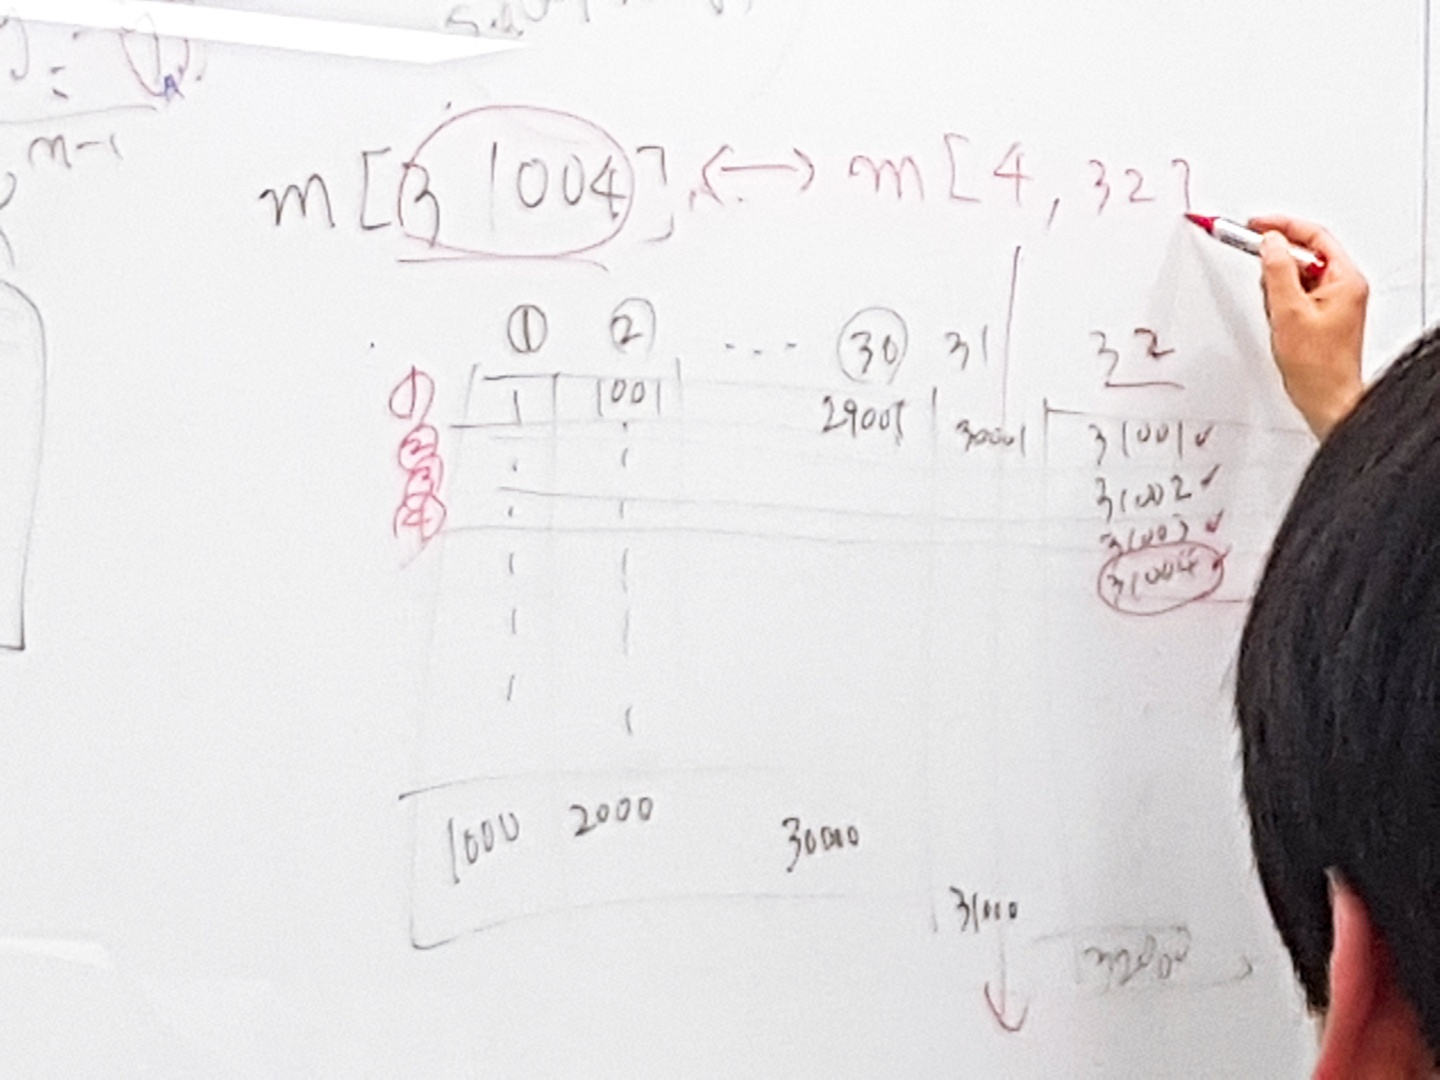 m-1
m[31004], ↔ m[4,32]
① ② ... ㉚ 31 32
① 1 1001 29001 30001 31001 ✓
② 31002 ✓
③ 31003 ✓
④ 31004 ✓
1000 2000 30000
31000
32000